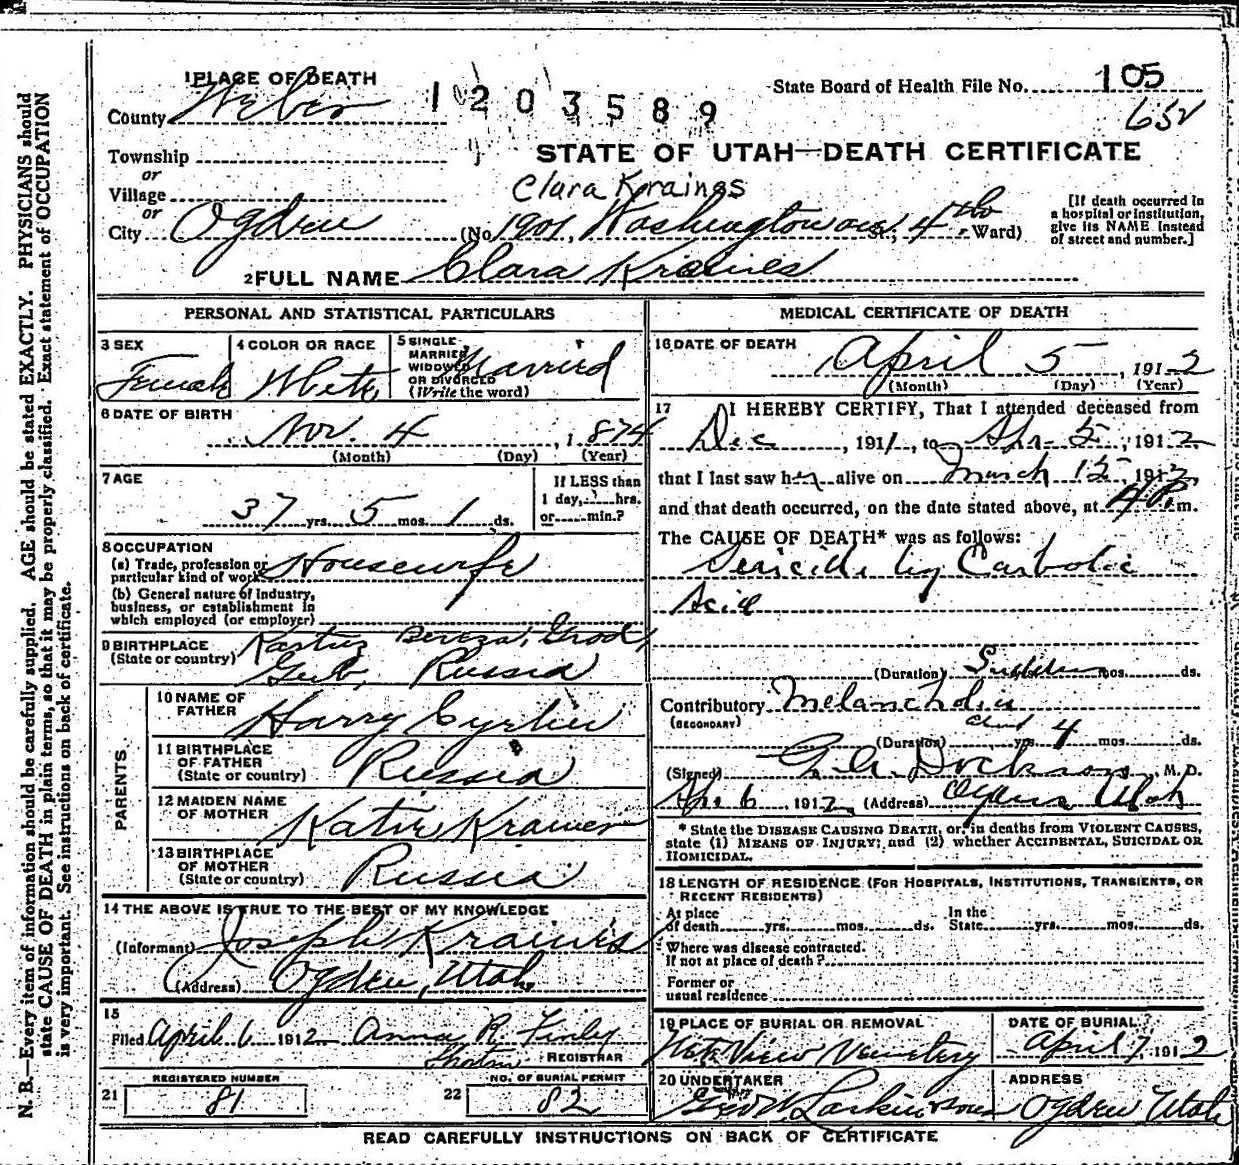 1 PLACE OF DEATH
1203589
State Board of Health File No. 105
652
County Weber
Township
or
Village
or
City Ogden
STATE OF UTAH—DEATH CERTIFICATE
Clara Kraings
(No. 1901, Washington ave St.; 4th Ward)
[If death occurred in a hospital or institution, give its NAME instead of street and number.]
2 FULL NAME Clara Kraines
PERSONAL AND STATISTICAL PARTICULARS
3 SEX Female
4 COLOR OR RACE White
5 SINGLE, MARRIED, WIDOWED OR DIVORCED (Write the word) Married
6 DATE OF BIRTH
Nov. 4, 1874
(Month) (Day) (Year)
7 AGE
37 yrs. 5 mos. 1 ds.
If LESS than
1 day, hrs.
or min.?
8 OCCUPATION
(a) Trade, profession or particular kind of work Housewife
(b) General nature of industry, business, or establishment in which employed (or employer)
9 BIRTHPLACE (State or country) Kartuz Bereza, Grod, Gub, Russia
PARENTS
10 NAME OF FATHER Harry
11 BIRTHPLACE OF FATHER (State or country) Russia
12 MAIDEN NAME OF MOTHER Katie Kramer
13 BIRTHPLACE OF MOTHER (State or country) Russia
14 THE ABOVE IS TRUE TO THE BEST OF MY KNOWLEDGE
(Informant) Joseph Kraines
(Address) Ogden, Utah.
15
Filed April 6 1912 Anna R. Finley
REGISTRAR
REGISTERED NUMBER
21 81
NO. OF BURIAL PERMIT
22 82
MEDICAL CERTIFICATE OF DEATH
16 DATE OF DEATH
April 5, 1912
(Month) (Day) (Year)
17 I HEREBY CERTIFY, That I attended deceased from
Dec, 1911, to Apr 5, 1912
that I last saw her alive on March 15, 1912
and that death occurred, on the date stated above, at 4 P.m.
The CAUSE OF DEATH* was as follows:
Suicide by Carbolic
Acid
(Duration) Sudden mos. ds.
Contributory Melancholia
(SECONDARY)
(Duration) about yrs. 4 mos. ds.
(Signed) G. A. Dickson, M.D.
Apr 6 1912 (Address) Ogden Utah
* State the DISEASE CAUSING DEATH, or, in deaths from VIOLENT CAUSES,
state (1) MEANS OF INJURY; and (2) whether ACCIDENTAL, SUICIDAL OR
HOMICIDAL.
18 LENGTH OF RESIDENCE (FOR HOSPITALS, INSTITUTIONS, TRANSIENTS, OR
RECENT RESIDENTS)
At place of death yrs. mos. ds. In the State yrs. mos. ds.
Where was disease contracted.
If not at place of death?
Former or
usual residence
19 PLACE OF BURIAL OR REMOVAL
View Cemetery
DATE OF BURIAL
April 7, 1912
20 UNDERTAKER
Geo W Larkin & Sons
ADDRESS
Ogden Utah
READ CAREFULLY INSTRUCTIONS ON BACK OF CERTIFICATE
N. B.—Every item of information should be carefully supplied. AGE should be stated EXACTLY. PHYSICIANS should
state CAUSE OF DEATH in plain terms, so that it may be properly classified. Exact statement of OCCUPATION
is very important. See instructions on back of certificate.